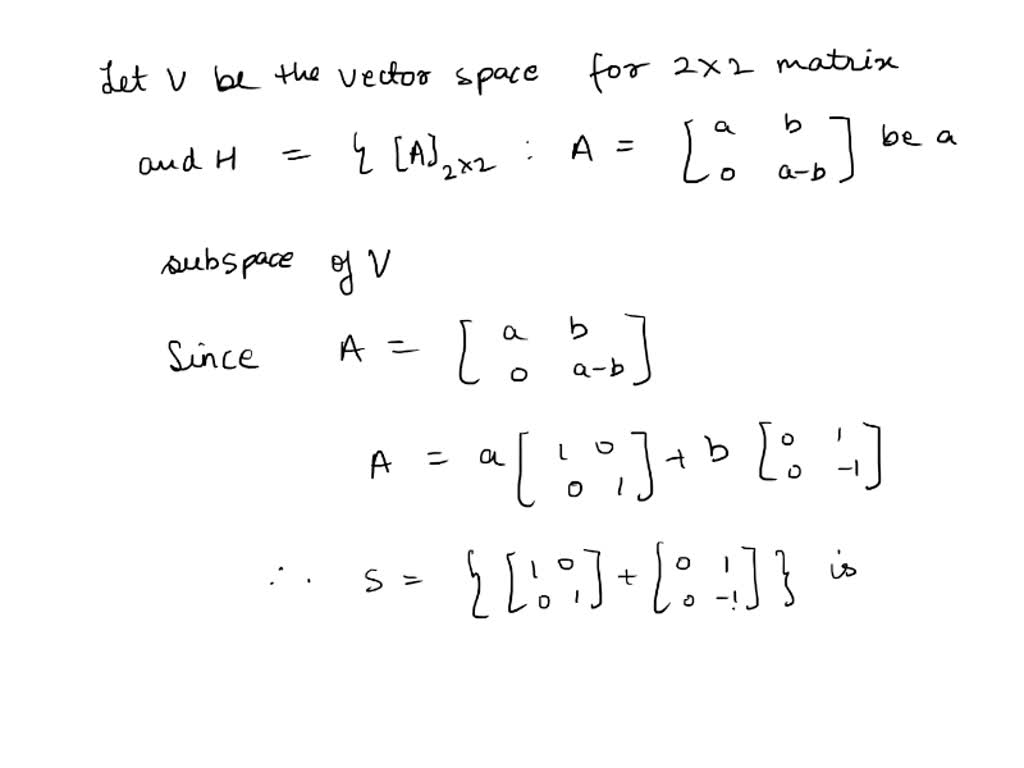 Let V be the vector space for 2×2 matrix
and H = { [A]2×2 : A = [ a b 0 a-b ] be a
subspace of V
Since A = [ a b 0 a-b ]
A = a [ 1 0 0 1 ] + b [ 0 1 0 -1 ]
∴ S = { [ 1 0 0 1 ] + [ 0 1 0 -1 ] } is